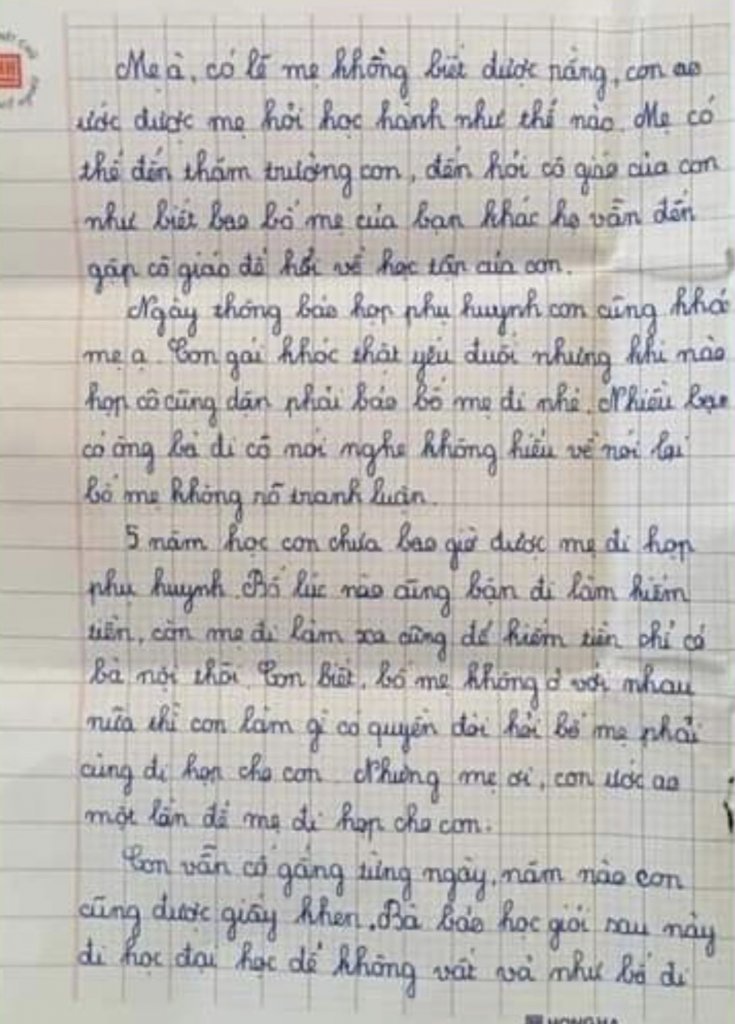 Mẹ à, có lẽ mẹ không biết được rằng, con ao
ước được mẹ hỏi học hành như thế nào. Mẹ có
thể đến thăm trường con, đến hỏi cô giáo của con
như biết bao bố mẹ của bạn khác họ vẫn đến
gặp cô giáo để hỏi về học tập của con.
Ngày thông báo họp phụ huynh con cũng khóc
mẹ ạ. Con gái khóc thật yếu đuối nhưng khi nào
họp cô cũng dặn phải bảo bố mẹ đi nhé. Nhiều bạn
có ông bà đi cô nói nghe không hiểu về nói lại
bố mẹ không rõ tranh luận.
5 năm học con chưa bao giờ được mẹ đi họp
phụ huynh. Bố lúc nào cũng bận đi làm kiếm
tiền, còn mẹ đi làm xa cũng để kiếm tiền chỉ có
bà nội thôi. Con biết, bố mẹ không ở với nhau
nữa thì con làm gì có quyền đòi hỏi bố mẹ phải
cùng đi họp cho con. Nhưng mẹ ơi, con ước ao
một lần để mẹ đi họp cho con.
Con vẫn cố gắng từng ngày, năm nào con
cũng được giấy khen. Bà bảo học giỏi sau này
đi học đại học để không vất vả như bố đi
HONG HA